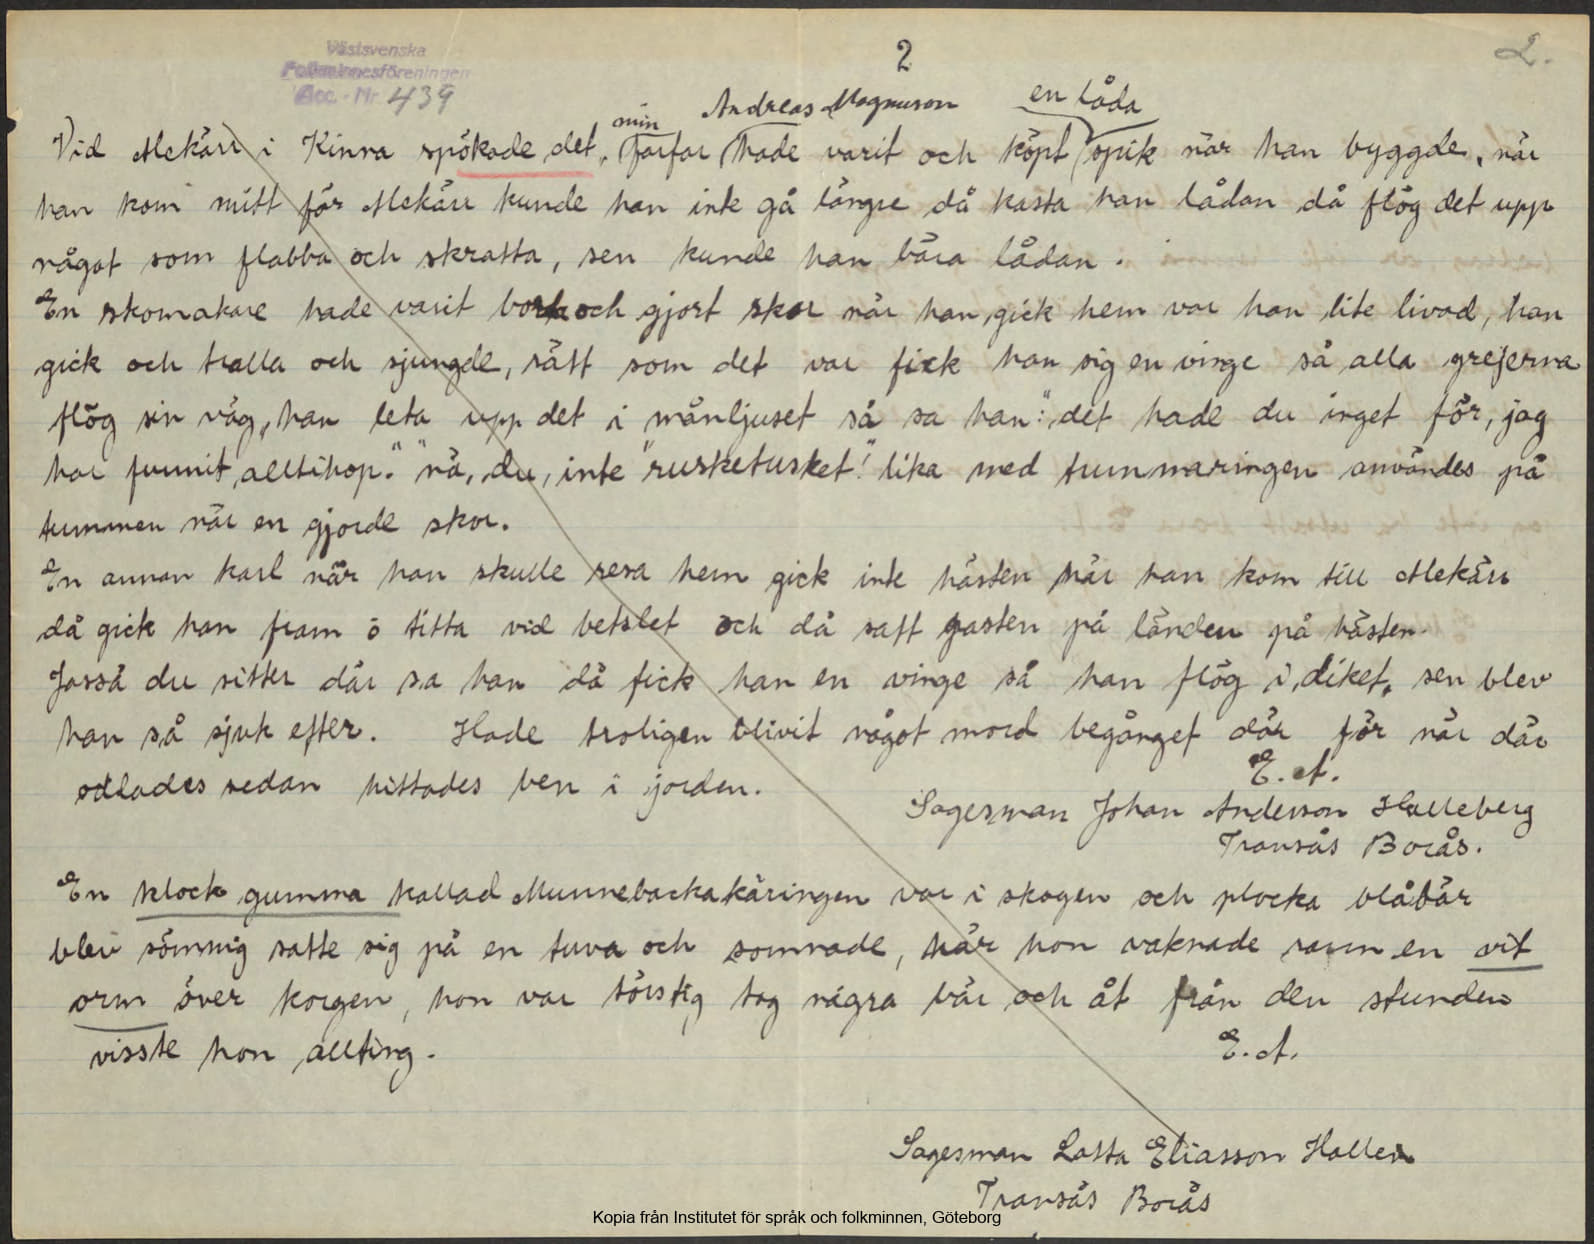 Västsvenska
Folkminnesföreningen
Acc. Nr 439
2
2.
min Andreas Magnuson en låda
Vid Alekärr i Kinna spökade det, farfar hade varit och köpt spik när han byggde, når
han kom mitt för Alekärr kunde han inte gå längre då kasta han lådan då flög det upp
något som flabba och skratta, sen kunde han bära lådan.
En skomakare hade varit bort och gjort skor når han gick hem var han lite livad, han
gick och tralla och sjungde, rätt som det var fick han sig en vinge så alla grejerna
flög sin väg, han leta upp det i månljuset så sa han: "det hade du inget för, jag
har funnit alltihop." "nä, du, inte "rusketusket!" lika med tummaringen användes på
tummen når en gjorde skor.
En annan karl når han skulle resa hem gick inte hästen når han kom till Alekärr
då gick han fram ö titta vid betslet och då satt gasten på länden på hästen.
Jasså du sitter där sa han då fick han en vinge så han flög i diket, sen blev
han så sjuk efter. Hade troligen blivit något mord begånget där för når där
odlades sedan hittades ben i jorden.
E. A.
Sagesman Johan Andersson Halleberg
Transås Borås.
En klock gumma kallad Munnebackakäringen var i skogen och plocka blåbär
blev sömnig satte sig på en tuva och somnade, når hon vaknade rann en vit
orm över korgen, hon var törstig tog några bär och åt från den stunden
visste hon allting.
E. A.
Sagesman Lotta Eliasson Hallen
Transås Borås
Kopia från Institutet för språk och folkminnen, Göteborg